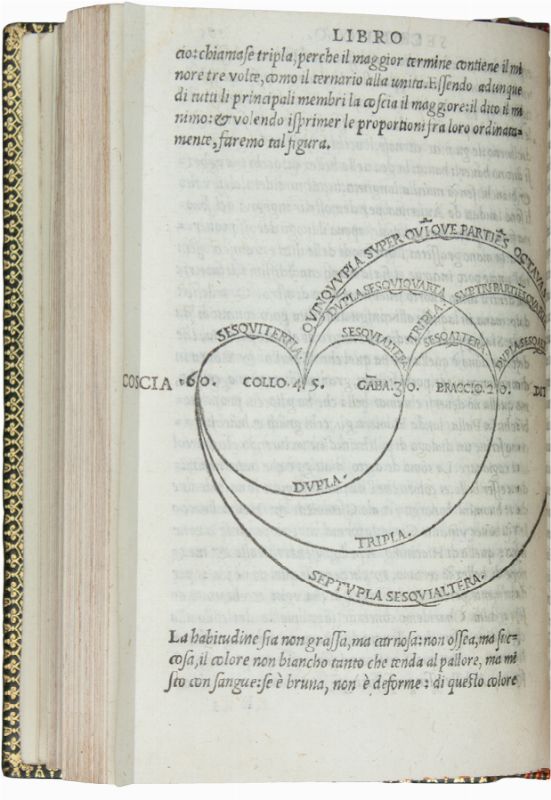 LIBRO
cio: chiamase tripla, perche il maggior termine contiene il mi
nore tre volte, como il ternario alla unita. Essendo adunque
di tutti li principali membri la coscia il maggiore: il dito il mi
nimo: & volendo isprimer le proportioni fra loro ordinata=
mente, faremo tal figura.
QVINQVVPLA SVPER QVĨQVE PARTIẼS OCTAVAS
DVPLA SESQVIQVARTA
SVPTRIPARTIẼS
SESQVITERTIA.
SESQVIALTERA
TRIPLA
SESQALTERA
DVPLA SESQVAL
COSCIA .60. COLLO .45. GÃBA .30. BRACCIO .20. DIT
DVPLA.
TRIPLA.
SEPTVPLA SESQVIALTERA.
La habitudine sia non grassa, ma carnosa: non ossea, ma suc=
cosa, il colore non biancho tanto che tenda al pallore, ma mi
sto con sangue: se è bruna, non è deforme: di questo colore